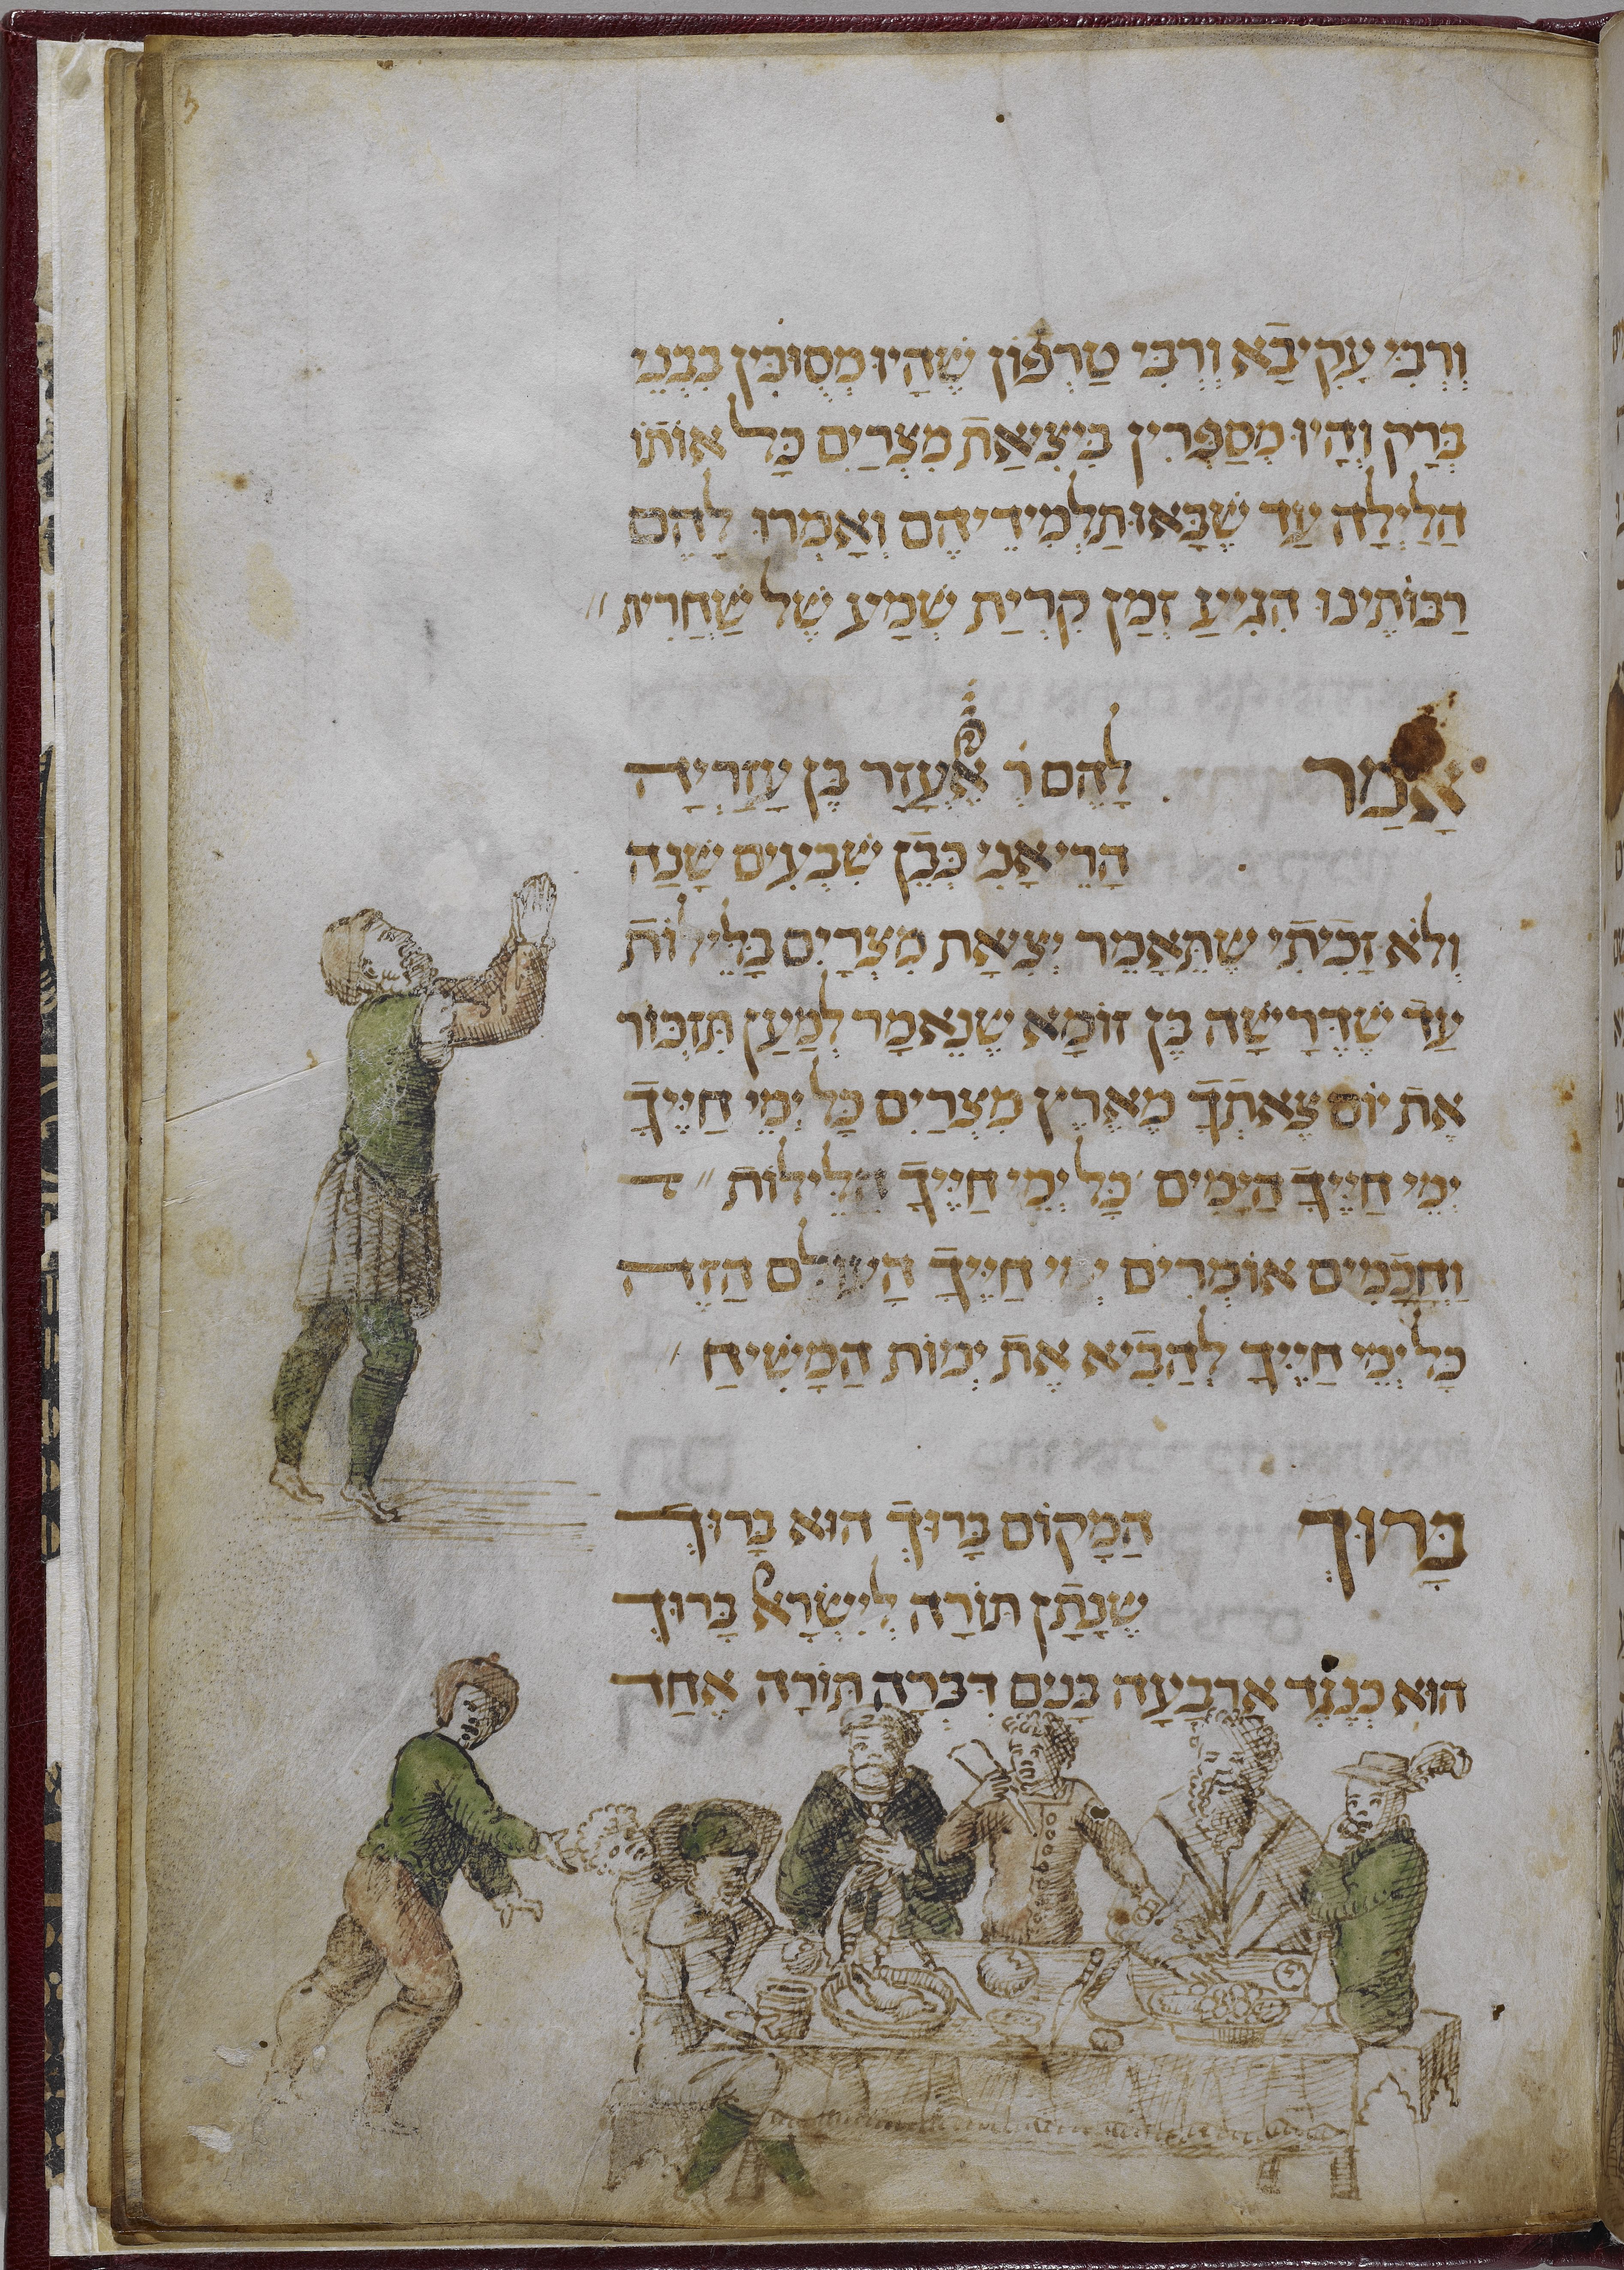 וְרִבִּי עֲקִיבָא וְרִבִּי טַרְפוֹן שֶׁהָיוּ מְסֻובִּין בִּבְנֵי
בְּרָק וְהָיוּ מְסַפְּרִין בִּיצִיאַת מִצְרַיִם כָּל אוֹתוֹ
הַלַּיְלָה עַד שֶׁבָּאוּ תַּלְמִידֵיהֶם וְאָמְרוּ לָהֶם
רַבּוֹתֵינוּ הִגִּיעַ זְמַן קְרִיַת שְׁמַע שֶׁל שַׁחֲרִית
אָמַר לָהֶם ר' אֶלְעָזָר בֶּן עֲזַרְיָה
הֲרֵי אֲנִי כְּבֶן שִׁבְעִים שָׁנָה
וְלֹא זָכִיתִי שֶׁתֵּאָמֵר יְצִיאַת מִצְרַיִם בַּלֵּילוֹת
עַד שֶׁדְּרָשָׁהּ בֶּן זוֹמָא שֶׁנֶּאֱמַר לְמַעַן תִּזְכּוֹר
אֶת יוֹם צֵאתְךָ מֵאֶרֶץ מִצְרַיִם כָּל יְמֵי חַיֶּיךָ
יְמֵי חַיֶּיךָ הַיָּמִים כָּל יְמֵי חַיֶּיךָ הַלֵּילוֹת
וַחֲכָמִים אוֹמְרִים יְמֵי חַיֶּיךָ הָעוֹלָם הַזֶּה
כָּל יְמֵי חַיֶּיךָ לְהַבִיא אֶת יְמוֹת הַמָּשִׁיחַ
בָּרוּךְ הַמָּקוֹם בָּרוּךְ הוּא בָּרוּךְ
שֶׁנָּתַן תּוֹרָה לְיִשְׂרָאֵל בָּרוּךְ
הוּא כְּנֶגֶד אַרְבָּעָה בָּנִים דִּבְּרָה תּוֹרָה אֶחָד